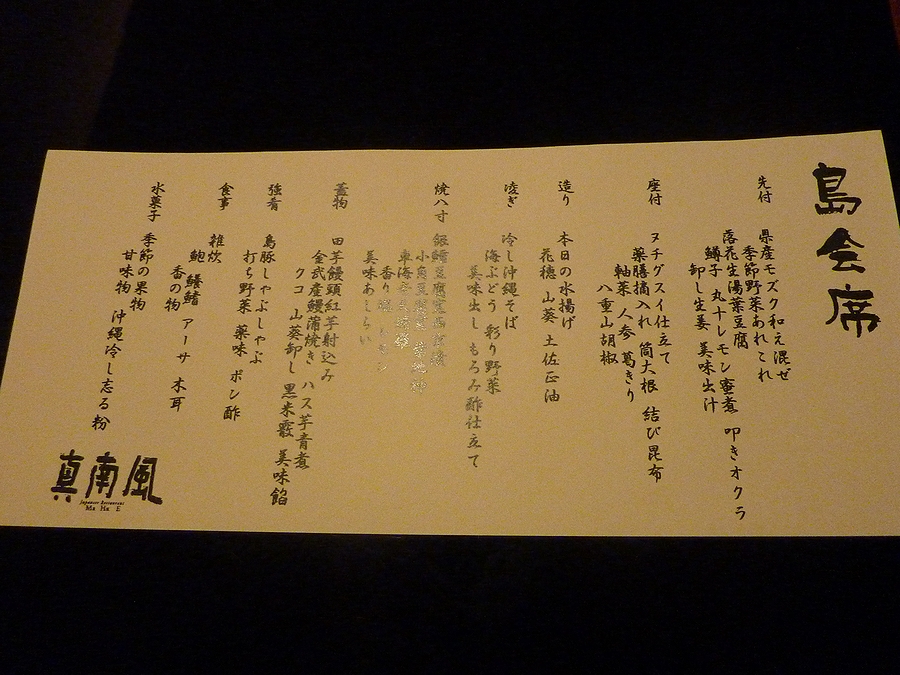 島会席
先付
県産モズク和え混ぜ
季節野菜あれこれ
落花生湯葉豆腐 叩きオクラ
鱒子 丸十レモン蜜煮
卸し生姜 美味出汁
座付
ヌチグスイ仕立て
薬膳插入れ 筒大根 結び昆布
軸菜 人参 葛きり
八重山胡椒
造り
本日の水揚げ
花穂 山葵 土佐正油
凌ぎ
冷し沖縄そば
海ぶどう 彩り野菜
美味出し もろみ酢仕立て
焼八寸
美味あしらい
蓋物
田芋饅頭紅芋射込み
金武産鰻蒲焼き ハス芋青煮
クコ 山葵卸し 黒米霰 美味餡
強肴
島豚しゃぶしゃぶ
打ち野菜 薬味 ポン酢
食事
雑炊
鮑 鱶鰭 アーサ 木耳
香の物
水菓子
季節の果物
甘味物 沖縄冷し志る粉
真南風
Japanese Restaurant
Ma Ha E